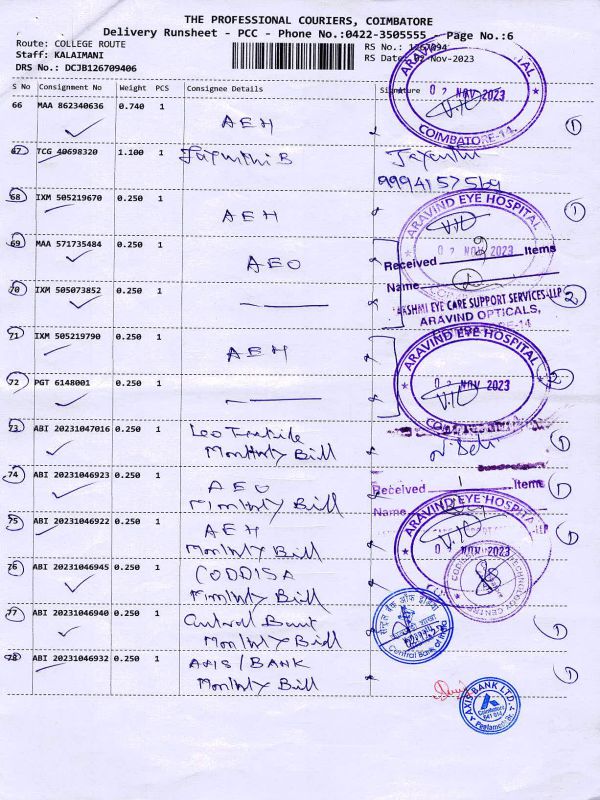 THE PROFESSIONAL COURIERS, COIMBATORE
Delivery Runsheet - PCC - Phone No.:0422-3505555 - Page No.:6
Route: COLLEGE ROUTE
RS No.: 1267094
Staff: KALAIMANI
RS Date: 02-Nov-2023
DRS No.: DCJB126709406
S No Consignment No Weight PCS Consignee Details Signature
66 MAA 862340636 0.740 1 AEH
ARAVIND EYE HOSPITAL
02 NOV 2023
COIMBATORE-14
67 TCG 40698320 1.100 1 Jayanthi B Jayanthi
9994157569
68 IXM 505219670 0.250 1 AEH
ARAVIND EYE HOSPITAL
02 NOV 2023
69 MAA 571735484 0.250 1 AEO
Received 2 Items
Name
70 IXM 505073852 0.250 1
LAKSHMI EYE CARE SUPPORT SERVICES-LLP
ARAVIND OPTICALS,
71 IXM 505219790 0.250 1 AEH
ARAVIND EYE HOSPITAL
72 PGT 6148001 0.250 1
02 NOV 2023
73 ABI 20231047016 0.250 1 Leo Textile
Monthly Bill
74 ABI 20231046923 0.250 1 AEO
Monthly Bill
Received 1 Items
Name
75 ABI 20231046922 0.250 1 AEH
Monthly Bill
ARAVIND EYE HOSPITAL
02 NOV 2023
76 ABI 20231046945 0.250 1 CODDISA
Monthly Bill
77 ABI 20231046940 0.250 1 Central Bank
Monthly Bill
सेन्ट्रल बैंक ऑफ इंडिया
Central Bank of India
78 ABI 20231046932 0.250 1 AXIS/BANK
Monthly Bill
AXIS BANK LTD.
Coimbatore
641 014